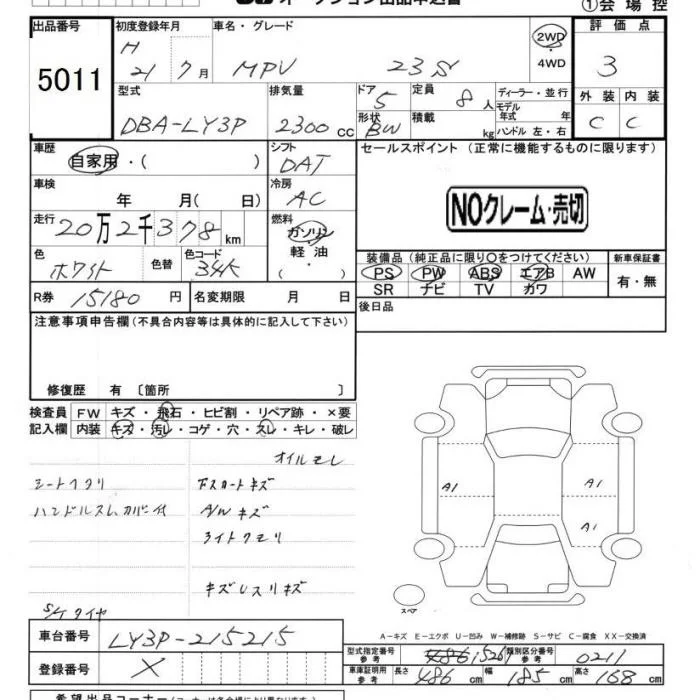 オークション出品申込書
①会場控
出品番号 5011
初度登録年月 H 21 7月
車名・グレード MPV 23S
2WD・4WD
評価点 3
型式 DBA-LY3P
排気量 2300 cc
ドア 5
形状 BW
定員 8人
積載 kg
ディーラー・並行
モデル年式 年
ハンドル 左・右
外装 C
内装 C
車歴 自家用・( )
シフト DAT
セールスポイント (正常に機能するものに限ります)
車検 年 月( 日)
冷房 AC
NOクレーム・売切
走行 20万2千378km
燃料 ガソリン 軽油 ・( )
色 ホワイト
色替
色コード 34K
装備品(純正品に限り○をつけてください)
新車保証書
PS PW ABS エアB AW
SR ナビ TV カワ
有・無
R券 15180円
名変期限 月 日
後日品
注意事項申告欄(不具合内容等は具体的に記入して下さい)
修復歴 有 〔箇所 〕
検査員記入欄
FW キズ・飛石・ヒビ割・リペア跡・×要
内装 キズ・汚レ・コゲ・穴・スレ・キレ・破レ
オイルモレ
シートヘタリ
下スカートキズ
ハンドルスレ、カバー付
A/Wキズ
ライトクモリ
キズUスリキズ
S/Tタイヤ
A1
A1
A1
スペア
A-キズ E-エクボ U-凹み W-補修跡 S-サビ C-腐食 XX-交換済
車台番号 LY3P-215215
型式指定番号 参考 15261
類別区分番号 参考 0211
登録番号 X
車庫証明用 参考 長さ 486cm 幅 185cm 高さ 168cm
希望出品コーナー